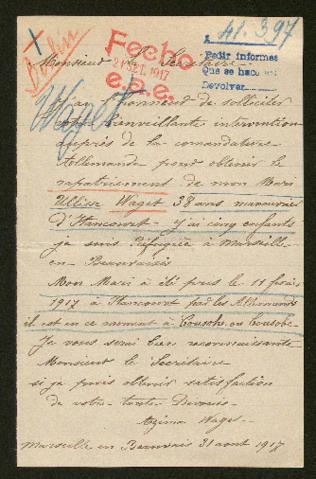 41.397
Berlin
Fecho
21 SET. 1917
e.p.e.
Pedir informes
Que se hace
Devolver
Monsieur le Secrétaire
Waget
J'ai l'honneur de solliciter
votre bienveillante intervention
auprès de la comandature
Allemande pour obtenir le
rapatriement de mon Mari
Ulisse Waget 38 ans manouvrier
d'Hancourt - j'ai cinq enfants
je suis réfugiée à Marseille-
en Beauvaisis
Mon Mari à été pris le 11 février
1917 à Hancourt par les Allemands
il est en ce moment à
Je vous serai bien reconnaissante
Monsieur le Secrétaire
si je puis obtenir satisfaction
de votre toute Dévouée
Azima Waget
Marseille en Beauvais 31 aout 1917